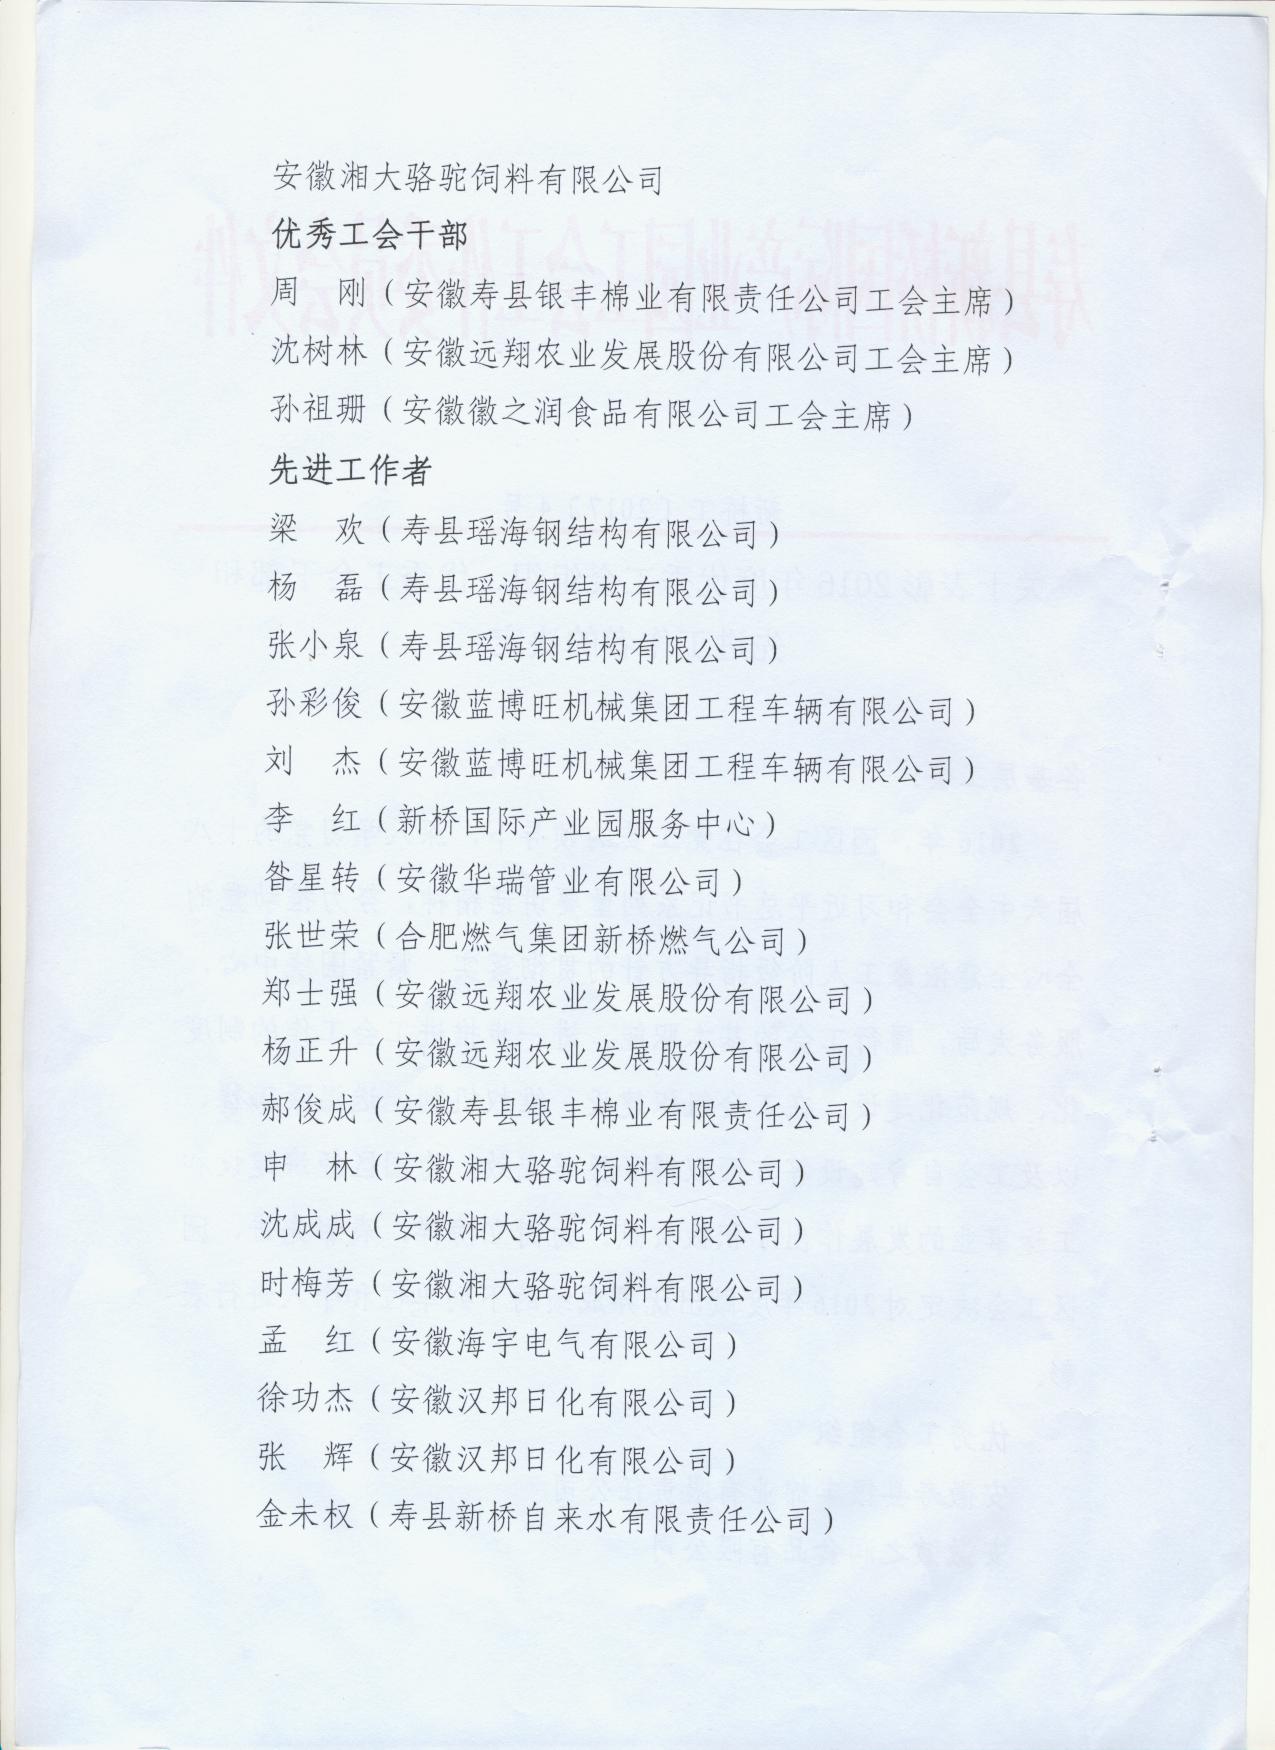 安徽湘大骆驼饲料有限公司
优秀工会干部
周　刚（安徽寿县银丰棉业有限责任公司工会主席）
沈树林（安徽远翔农业发展股份有限公司工会主席）
孙祖珊（安徽徽之润食品有限公司工会主席）
先进工作者
梁　欢（寿县瑶海钢结构有限公司）
杨　磊（寿县瑶海钢结构有限公司）
张小泉（寿县瑶海钢结构有限公司）
孙彩俊（安徽蓝博旺机械集团工程车辆有限公司）
刘　杰（安徽蓝博旺机械集团工程车辆有限公司）
李　红（新桥国际产业园服务中心）
昝星转（安徽华瑞管业有限公司）
张世荣（合肥燃气集团新桥燃气公司）
郑士强（安徽远翔农业发展股份有限公司）
杨正升（安徽远翔农业发展股份有限公司）
郝俊成（安徽寿县银丰棉业有限责任公司）
申　林（安徽湘大骆驼饲料有限公司）
沈成成（安徽湘大骆驼饲料有限公司）
时梅芳（安徽湘大骆驼饲料有限公司）
孟　红（安徽海宇电气有限公司）
徐功杰（安徽汉邦日化有限公司）
张　辉（安徽汉邦日化有限公司）
金未权（寿县新桥自来水有限责任公司）